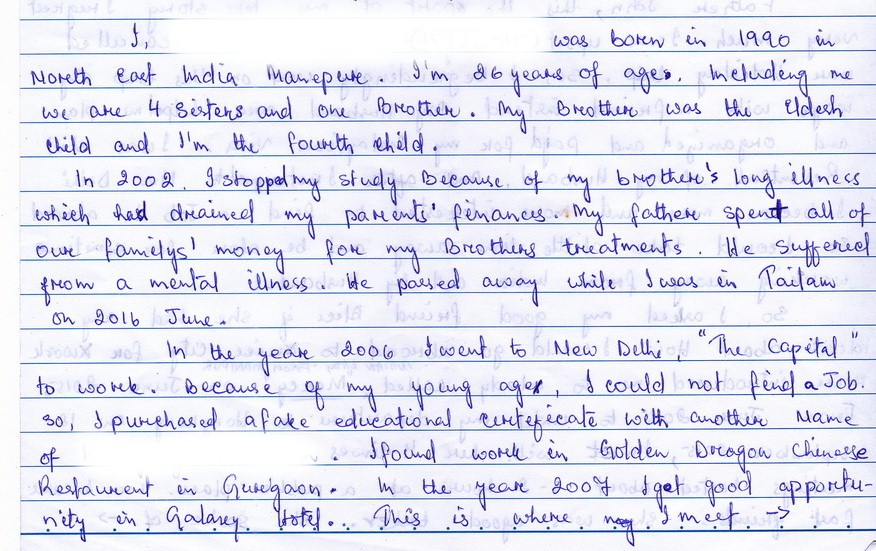 I, was born in 1990 in
North East India Manepure. I'm 26 years of age. Including me
we are 4 Sisters and one Brother. My Brother was the Eldesh
child and I'm the fourth child.
In 2002, I stopped my study Because of my brother's long illness
which had drained my parents' finances. My father spent all of
our familys' money for my Brothers treatments. He suffered
from a mental illness. He passed away while I was in Taitam
on 2016 June.
In the year 2006 I went to New Delhi, "The Capital"
to work. Because of my young age, I could not find a Job.
so, I purchased a fake educational certeficate with another Name
of . I found work in Golden, Dragon Chinese
Restaurent in Guregaon. In the year 2007 I get good apportu-
nity in Galaxy Hotel... This is where my I meet ->